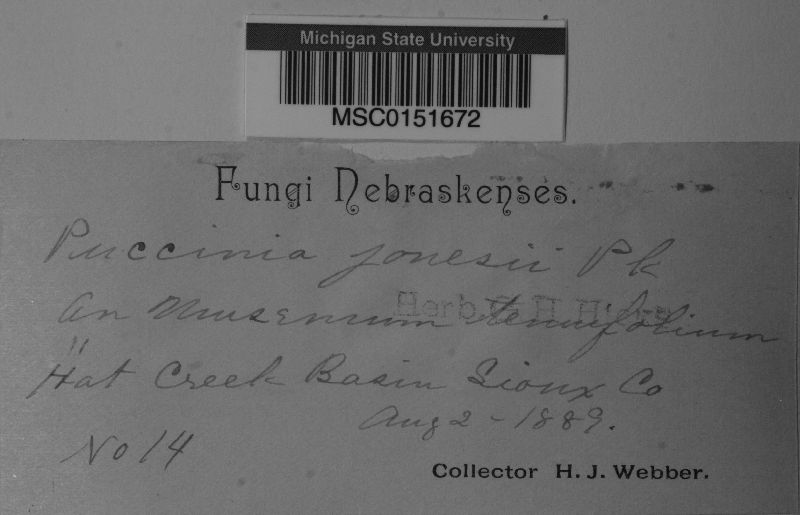 Michigan State University
MSC0151672
Fungi Nebraskenses.
Puccinia jonesii Pk
On Musenium tenuifolium
Herb
"Hat Creek Basin Sioux Co
Aug 2 - 1889.
No 14
Collector H. J. Webber.